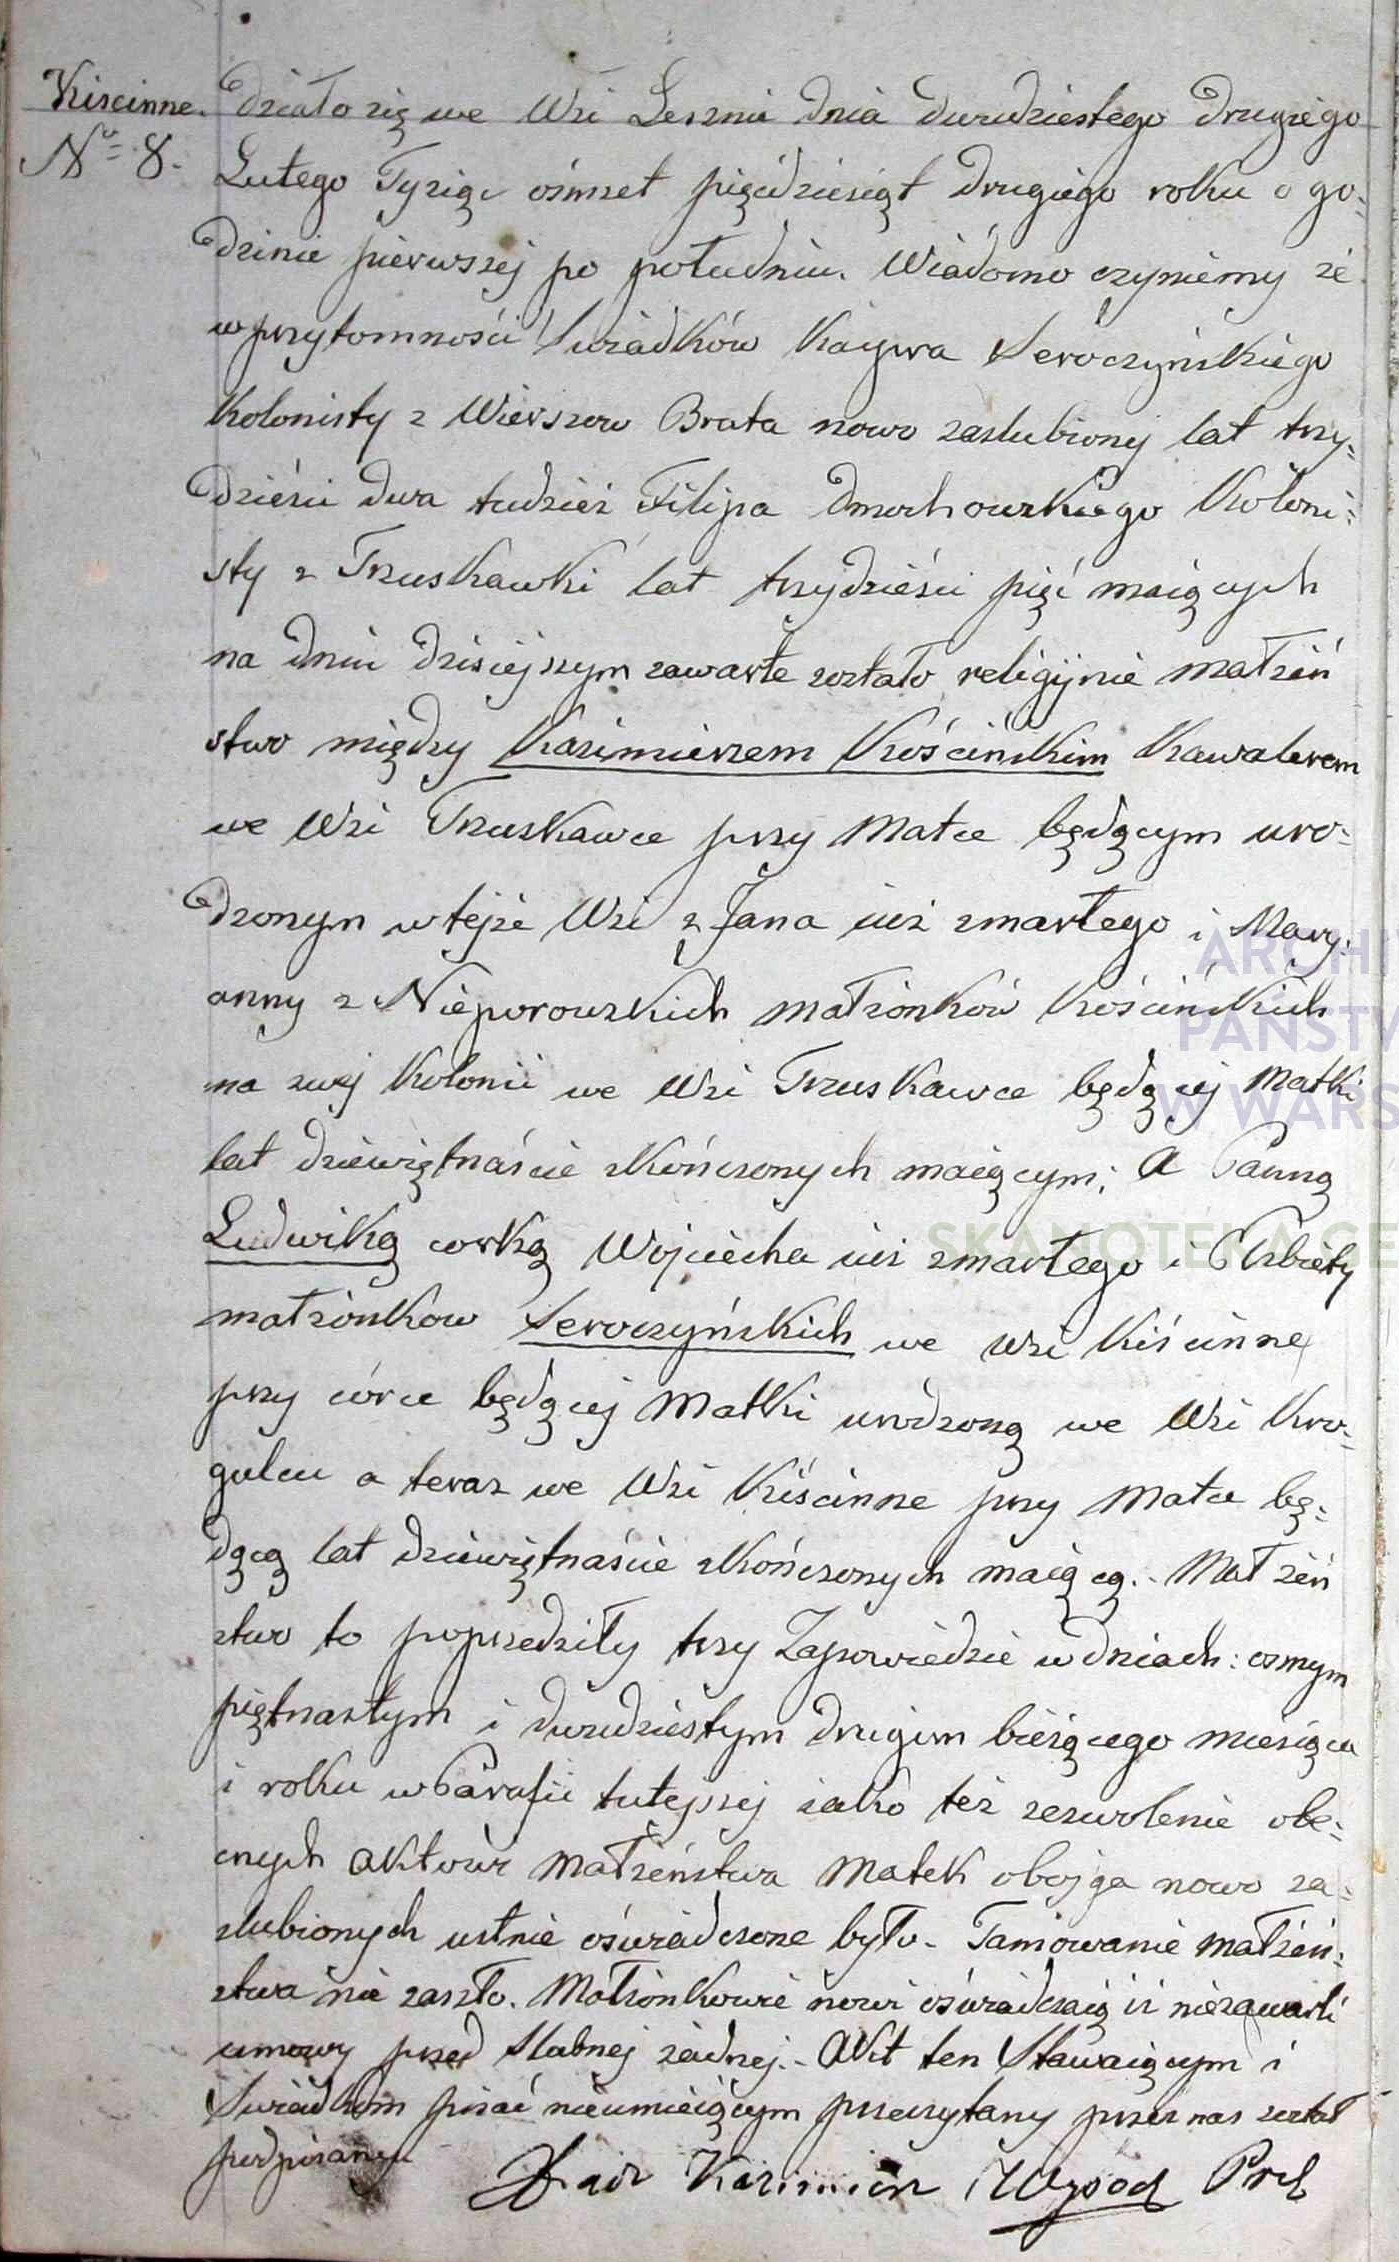 Kiscinne.
No 8.
Działo się we Wsi Lesznie dnia dwudziestego drugiego
Lutego Tysiąc ośmset pięćdziesiąt drugiego roku o go:
dzinie pierwszej po południu. Wiadomo czyniemy że
w przytomności Swiadków Kacpra Seroczyńskiego
Kolonisty z Wierszow Brata nowo zaslubionej lat trzy:
dzieści dwa tudzież Filipa Dmochowskiego Koloni:
sty z Truskawki lat trzydzieści pięć maiących
na dniu dzisiejszym zawarte zostało religijnie małżeń
stwo między Kazimierzem Kościńskim Kawalerem
we Wsi Truskawce przy Matce będącym uro:
dzonym w tejże Wsi z Jana iuż zmarłego i Mary:
anny z Nieporowskich małżonków Kościńskich
na swej Kolonii we Wsi Truskawce będącej Matki
lat dziewiętnaście skończonych maiącym; a Panną
Ludwiką corką Wojciecha iuż zmarłego i Elzbiety
małżonkow Seroczyńskich we wsi Kiścinne
przy córce będącej Matki urodzoną we Wsi Kro:
gulcu a teraz we Wsi Kiścinne przy Matce bę:
dącą lat dziewiętnaście skończonych maiącą.- Małżeń
stwo to poprzedziły trzy Zapowiedzie w dniach: osmym
piętnastym i dwudziestym drugim bieżącego miesiąca
i roku w Parafii tutejszej iako też zezwolenie obe:
cnych aktowi Małżeństwa Matek obojga nowo za:
slubionych ustnie oświadczone było- Tamowanie małżeń:
stwa nie zaszło. Małżonkowie nowi oświadczaią iż niezawarli
umowy przed slubnej żadnej.- Akt ten Stawaiącym i
Swiadkom pisać nieumieiącym przeczytany przez nas został
podpisany
Xiądz Kazimierz Wysocki Prob
ARCHI
PAŃSTW
W WARS
SKANOTEKA GE